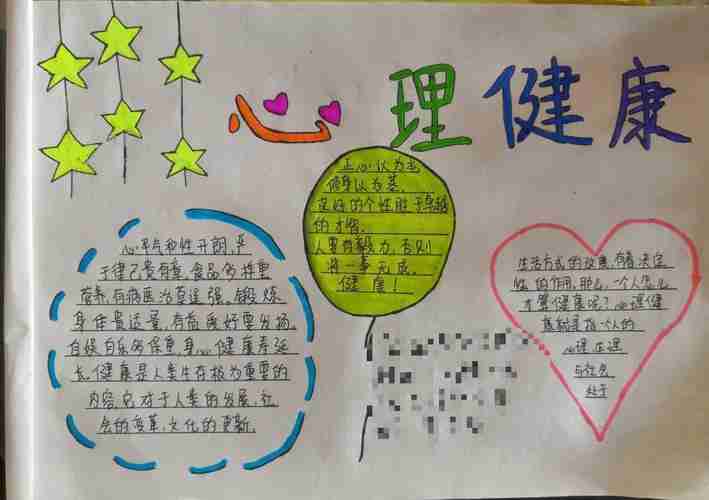 心理健康
正心以为本
修身以为基
良好的个性胜于卓越
的才智。
人要有毅力,否则
将一事无成。
健康!
心平气和性开朗,严
于律己贵自重,食品多样重
营养,有病医治莫逞强,锻炼
身体贵适量,有益爱好要发扬,
自娱自乐多保重,身心健康寿延
长.健康是人类生存极为重要的
内容,它对于人类的发展,社
会的变革,文化的更新,
生活方式的改变,有着决定
性的作用,那么,一个人怎么
才算健康呢?心理健
康就是指个人的
心理在理
与社会
处于